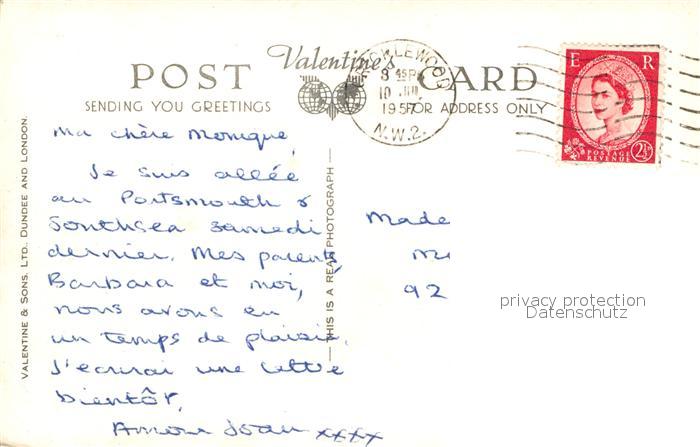 Valentine's
POST CARD
SENDING YOU GREETINGS
FOR ADDRESS ONLY
CRICKLEWOOD
8 45 PM
10 JUL
1957
N.W.2.
E R
POSTAGE
REVENUE
2½
VALENTINE & SONS, LTD., DUNDEE AND LONDON.
THIS IS A REAL PHOTOGRAPH
Ma chère Monique,
Je suis allée
au Portsmouth &
Southsea samedi
dernier. Mes parents,
Barbara et moi,
nous avons eu
un temps de plaisir.
J'écrirai une lettre
bientôt,
Amour Joan xxxx
Made
M
92
privacy protection
Datenschutz